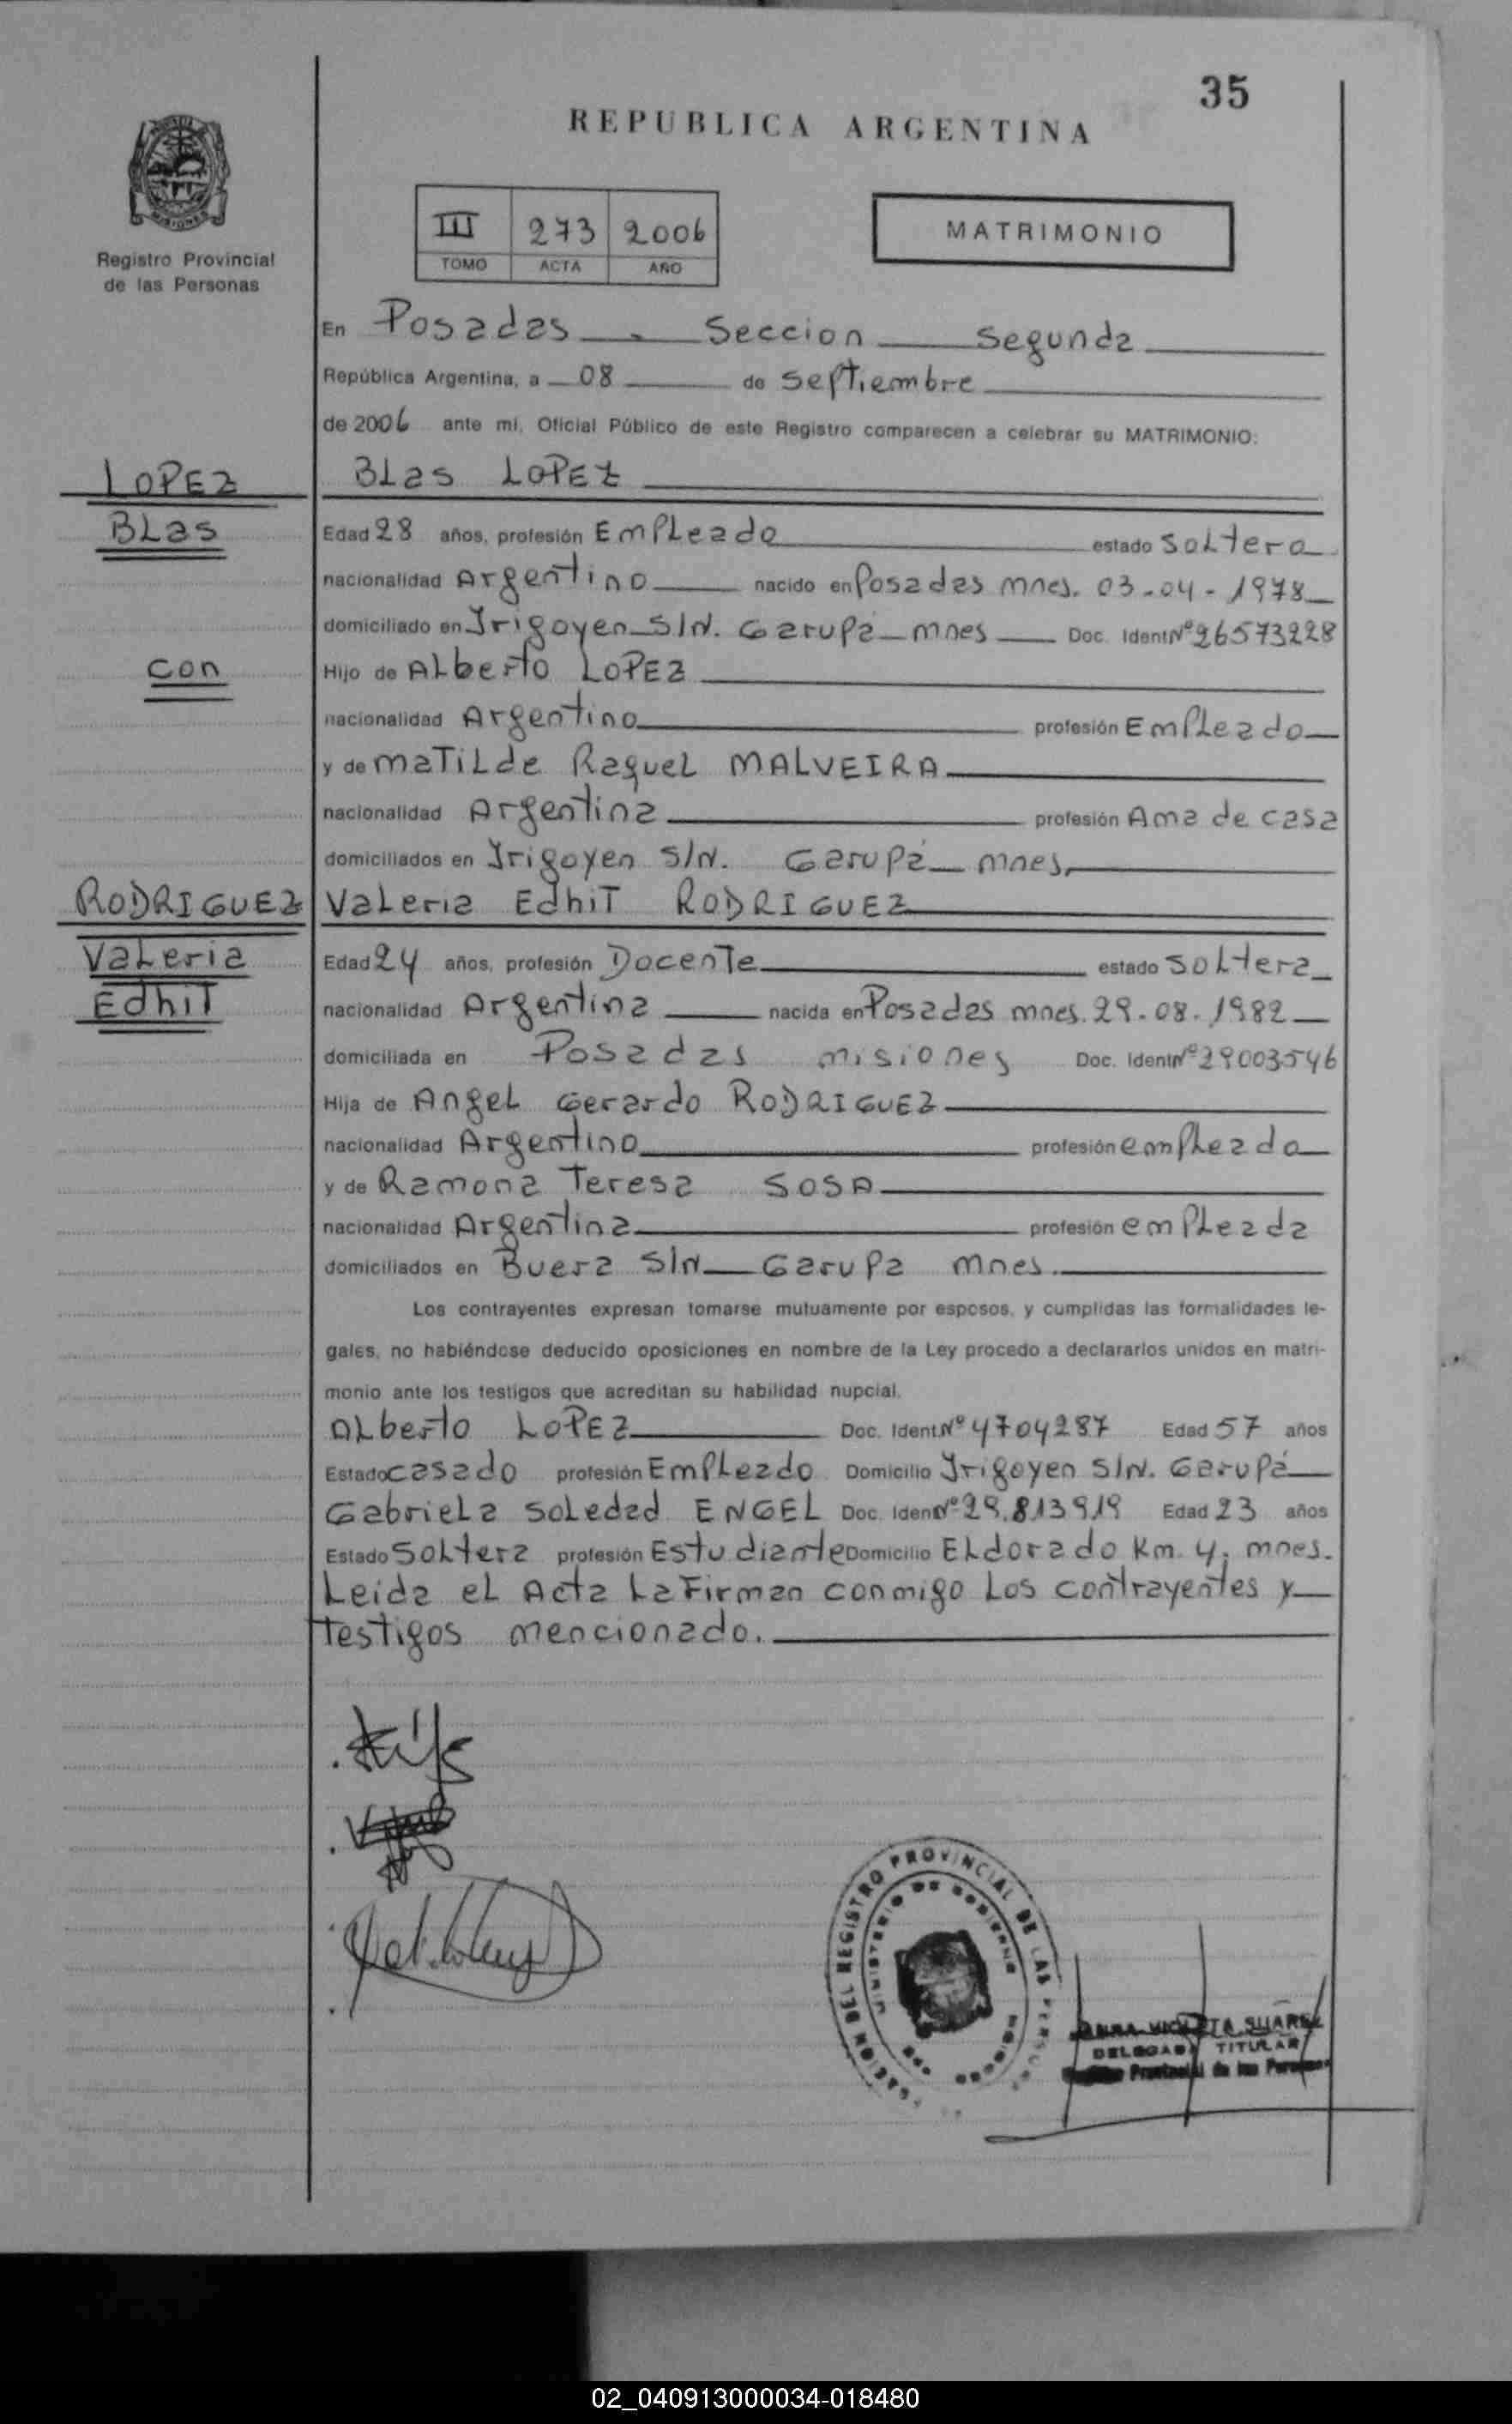 35
REPUBLICA ARGENTINA
III 273 2006
TOMO ACTA AÑO
MATRIMONIO
Registro Provincial
de las Personas
En Posadas - Seccion Segunda
República Argentina, a 08 de Septiembre
de 2006 ante mí, Oficial Público de este Registro comparecen a celebrar su MATRIMONIO:
LOPEZ
BLas
con
RODRIGUEZ
VaLeria
EdhiT
BLas LOPEZ
Edad 28 años, profesión EmpLeado estado soLtero
nacionalidad Argentino nacido en Posadas mnes. 03-04-1978
domiciliado en Irigoyen S/N. Garupa mnes Doc. Ident Nº 26573228
Hijo de ALberto LOPEZ
nacionalidad Argentino profesión EmpLeado
y de maTiLde RaqueL MALVEIRA
nacionalidad Argentina profesión Ama de casa
domiciliados en Irigoyen S/N. Garupá mnes,
VaLeria EdhiT RODRIGUEZ
Edad 24 años, profesión DocenTe estado soLtera
nacionalidad Argentina nacida en Posadas mnes. 29-08-1982
domiciliada en Posadas misiones Doc. Ident Nº 29003546
Hija de AngeL Gerardo RODRIGUEZ
nacionalidad Argentino profesión empLeado
y de Ramona Teresa SOSA
nacionalidad Argentina profesión empLeada
domiciliados en Buera S/N Garupa mnes.
Los contrayentes expresan tomarse mutuamente por esposos, y cumplidas las formalidades le-
gales, no habiéndose deducido oposiciones en nombre de la Ley procedo a declararlos unidos en matri-
monio ante los testigos que acreditan su habilidad nupcial.
ALberto LOPEZ Doc. Ident. Nº 4704287 Edad 57 años
Estado casado profesión EmpLeado Domicilio Irigoyen S/N. Garupá
GabrieLa soLedad ENGEL Doc. Ident Nº 29.813919 Edad 23 años
Estado SoLtera profesión Estudiante Domicilio ELdorado Km. 4, mnes.
Leida eL Acta La Firman conmigo Los contrayentes y
testigos mencionado.
REGISTRO PROVINCIAL DE LAS
MINISTERIO DE GOBIERNO
SUAREZ
DELEGADA TITULAR
Provincial de las Personas
02_040913000034-018480